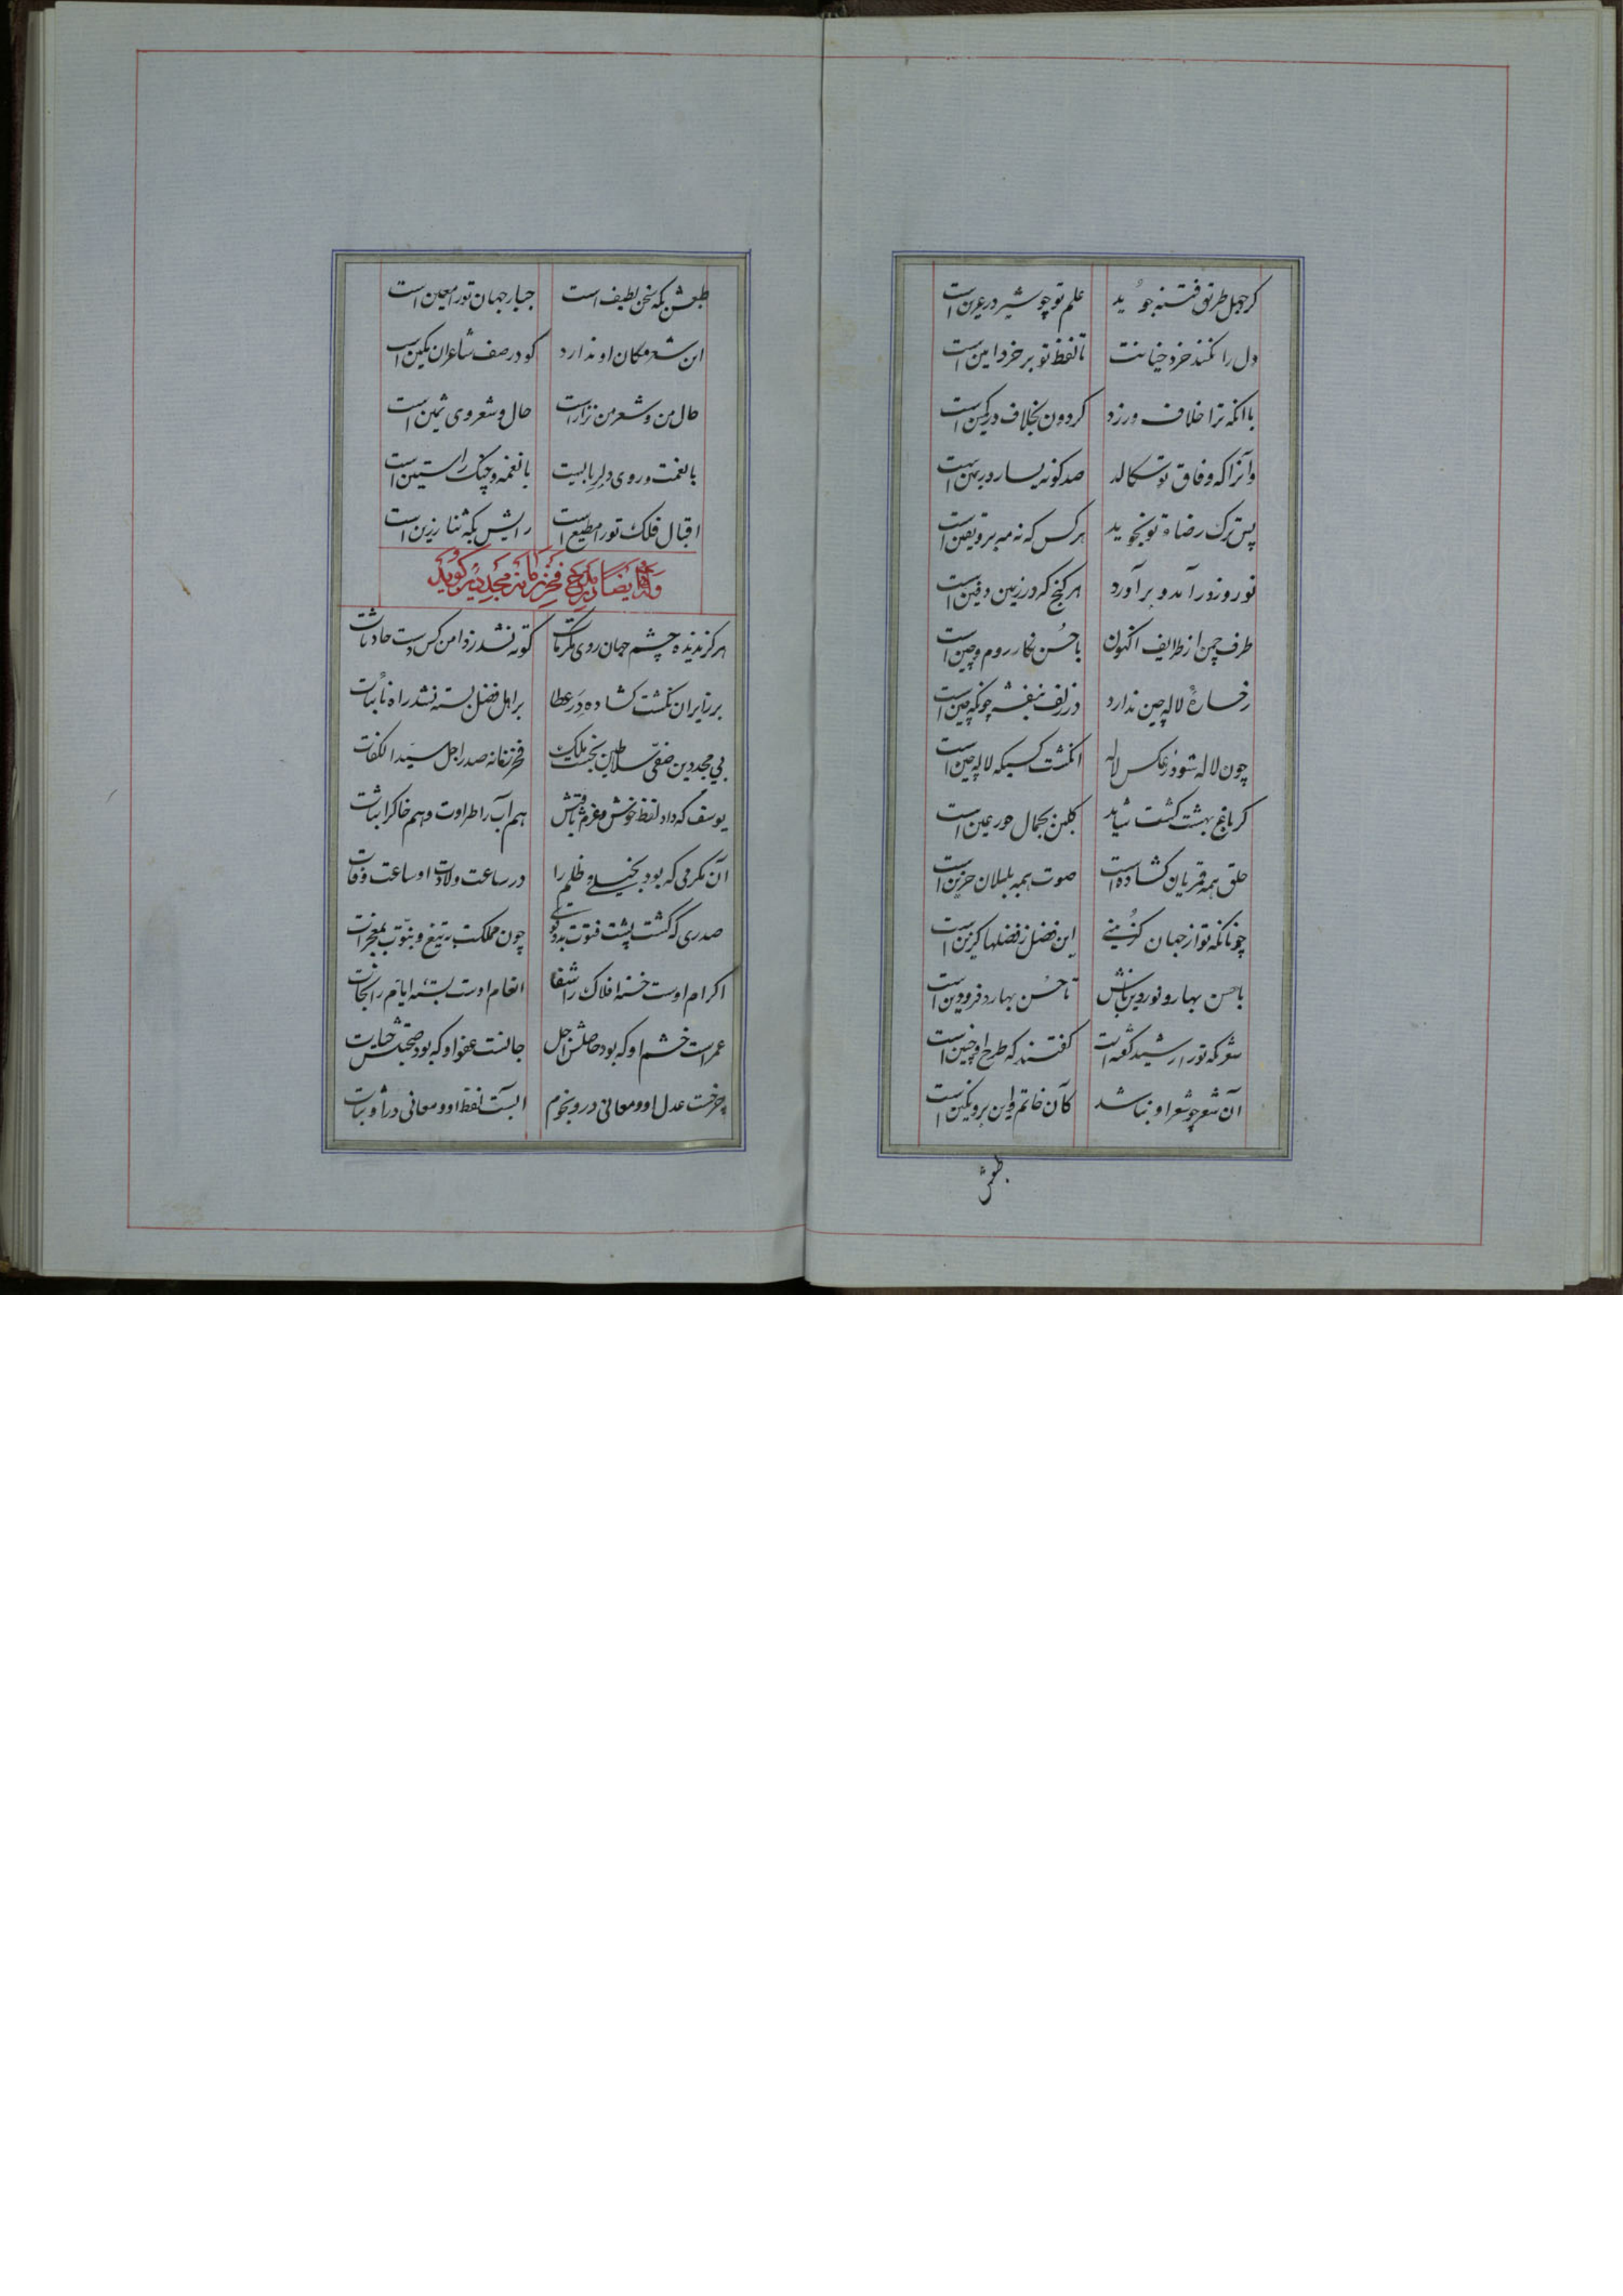 کر جهل طریق فتنه جوید علم تو چو شیر در عرین است
دل را نکند خرد خیانت تا لفظ تو بر خرد امین است
با آنکه ترا خلاف ورزد کردون بخلاف در کمین است
وآنرا که وفاق تو سکالد صد کونه یسار در یمین است
پس ترک رضاء تو نجوید هر کس که نه مه برو یقین است
نوروز درآمد و برآورد هر کنج که در زمین دفین است
طرف چمن از طرایف اکنون با حُسن نکار روم و چین است
رخسارهٔ لاله چین ندارد در زلف بنفشه چونکه چین است
چون لاله شود ز عکس لاله انکشت کسیکه لاله چین است
کر باغ بهشت کشت شاید کلبن بجمال حور عین است
حلق همه قمریان کشاده است صوت همه بلبلان حزین است
چونانکه تو از جهان کزینی این فصل ز فصلها کزین است
با حسن بهار و نوردین باش تا حُسن بهار و فرودین است
شعر که تو را رشید کفته است کفتند که طرح او چنین است
آن شعر چو شعر او نباشد کآن خاتم و این برو نکین است
طبعش
طبعش بکه سخن لطیف است جبار جهان تو را معین است
این شعر مکان او ندارد کو در صف شاعران مکین است
حال من و شعر من نزار است حال و شعر وی ثمین است
با نعمت و روی دلربائیست با نغمه و چنک راستین است
اقبال فلک تو را مطیع است رایش بکه ثنا رزین است
وله ایضا در مدح فخر زمانه مجددین کوید
هرکز ندیده چشم جهان روی مکرمات کوته نشد ز دامن کس دست حادثات
بر زایران نکشت کشاده در عطا بر اهل فضل بسته نشد راه نائبات
بی مجددین صفی سلاطین نجست ملک فخر زمانه صدر اجل سیّد الکفات
یوسف که داد لفظ خوش و عزم ثابتش هم آب را طراوت و هم خاک را ثبات
آن مکرمی که بود بخیلی و ظلم را در ساعت ولادت او ساعت وفات
صدری که کشت پشت فتوت بدو قوی چون مملکت به تیغ و نبوّت بمعجزات
اکرام اوست خستهٔ افلاک را شفا انعام اوست بستهٔ ایام را نجات
عمر است خشم او که بود حاصلش اجل جانست عفو او که بود صحبتش حیات
چرخست عدل او و معانی درو نجوم ابست لفظ او و معانی در او نبات